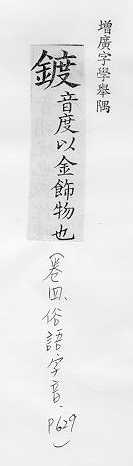 增廣字學舉隅
鍍音度以金飾物也
(卷四、俗語字音．P629)